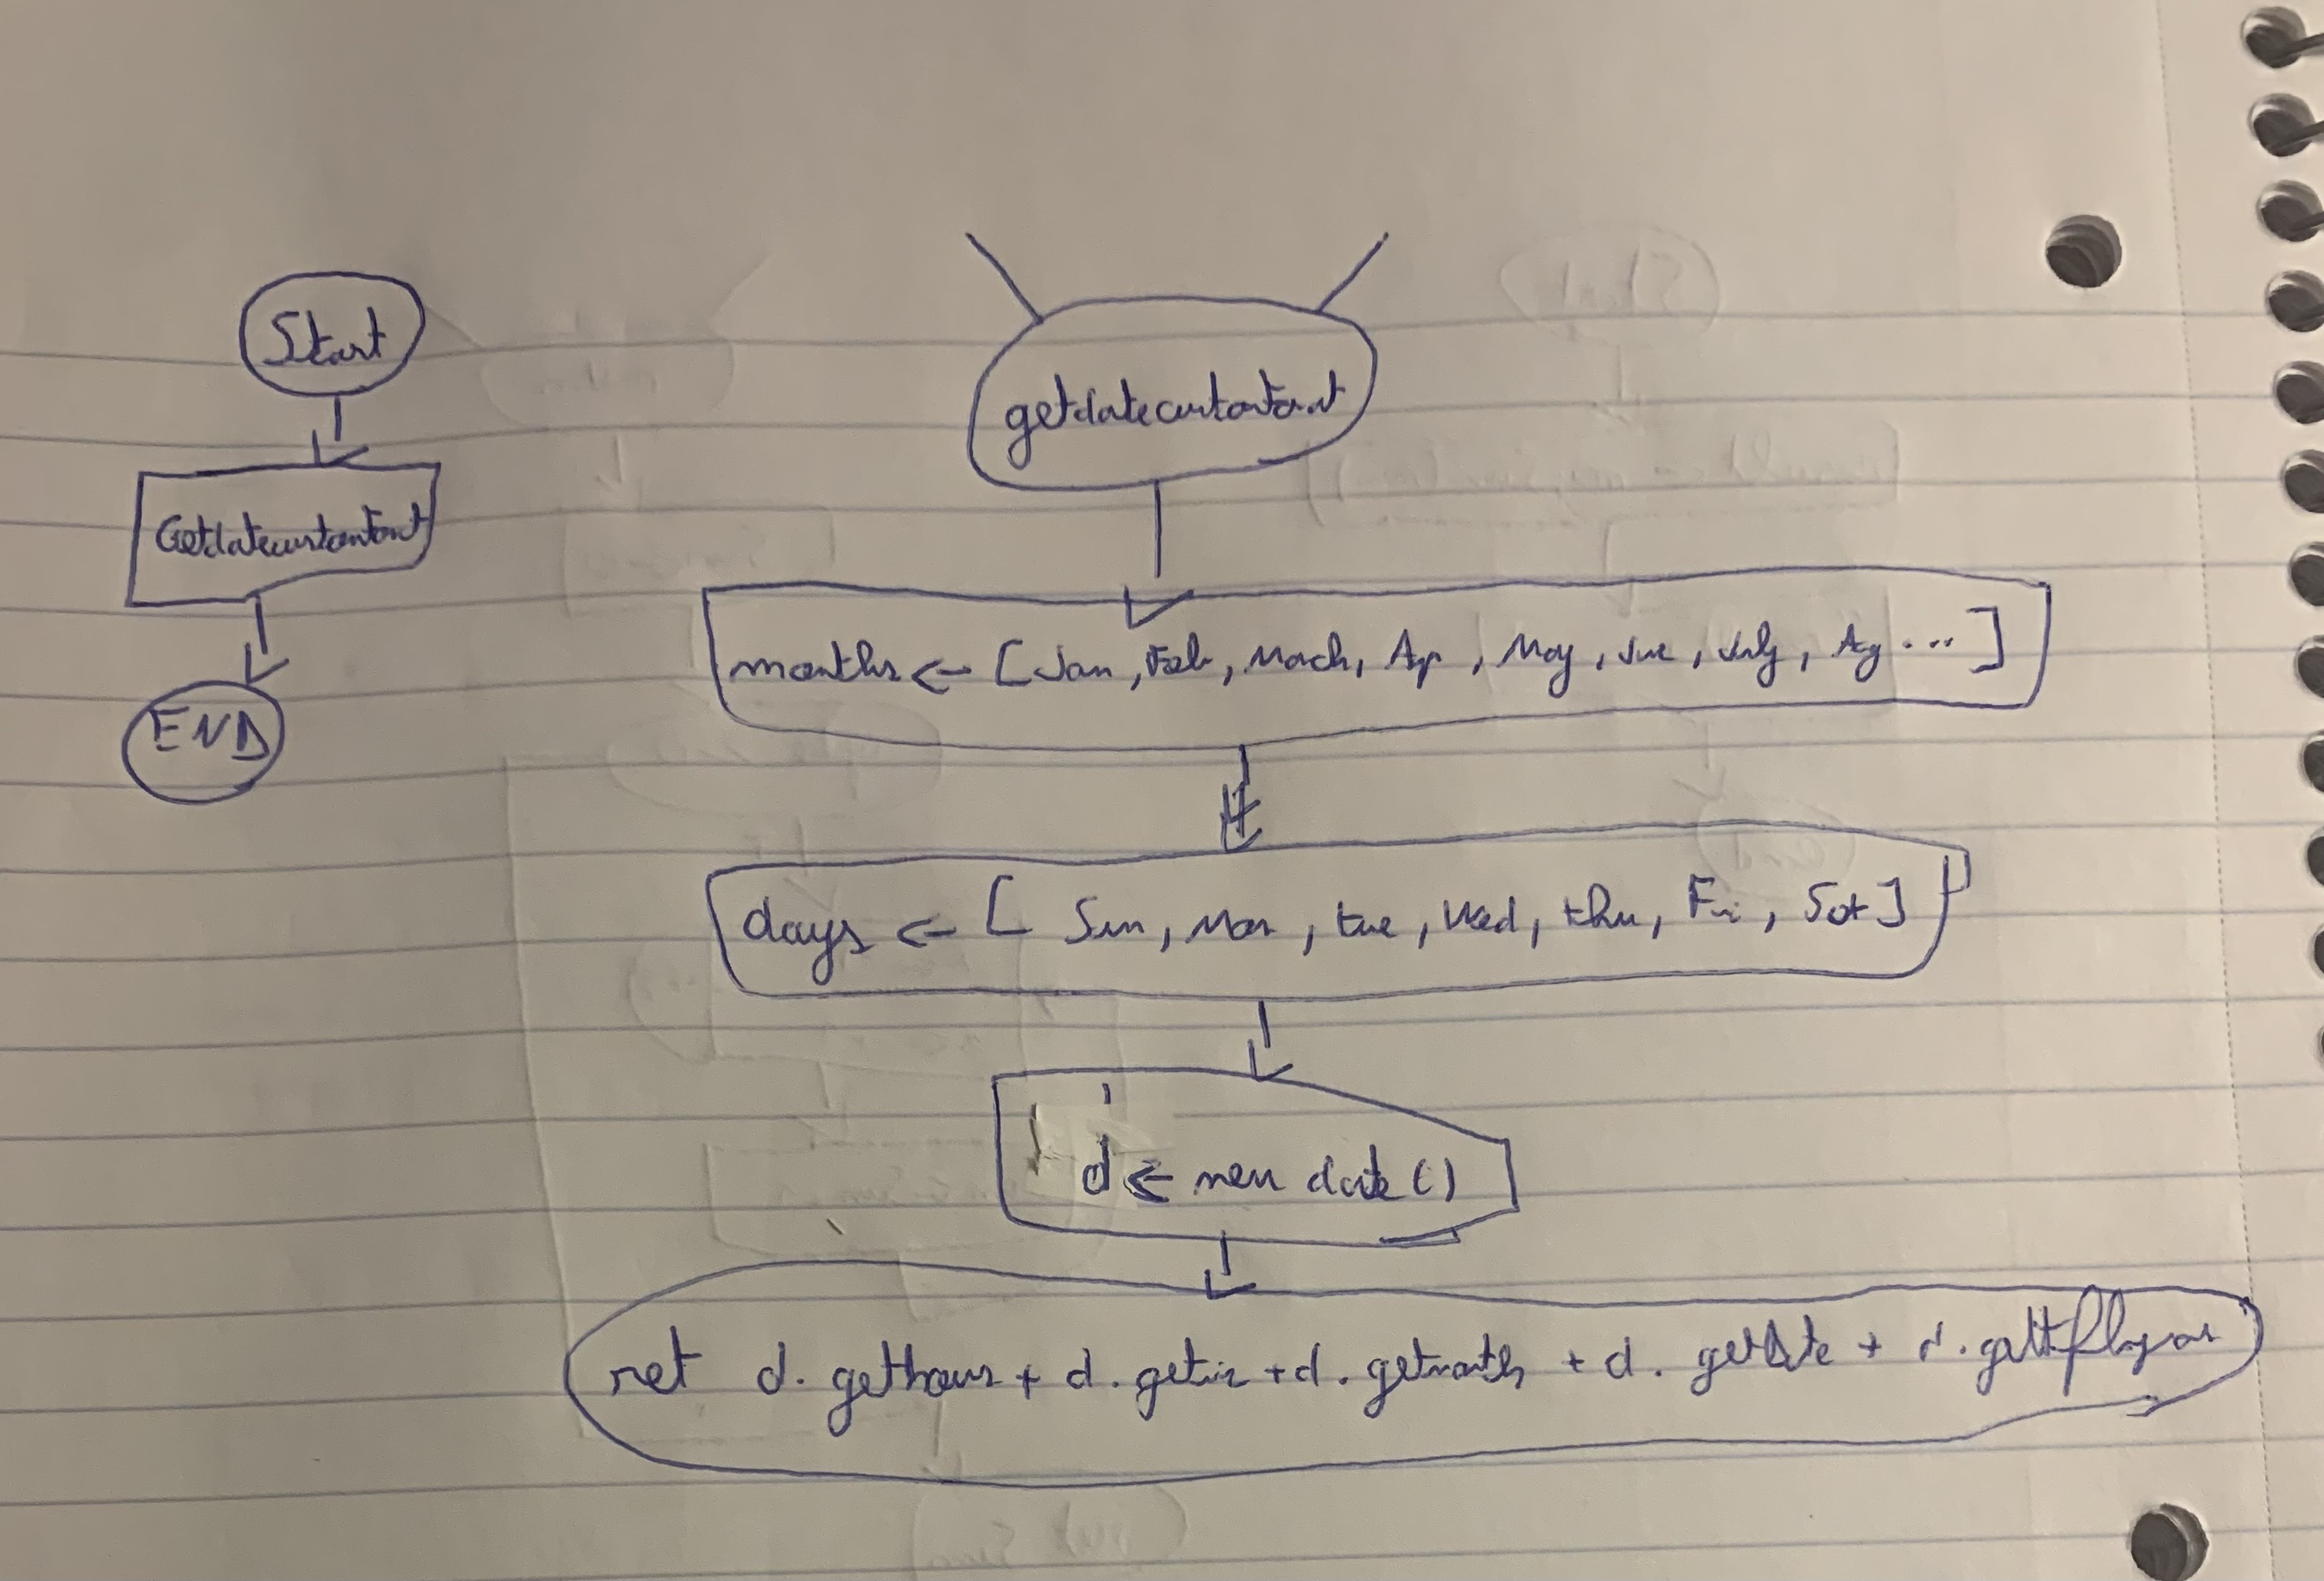 Start
Getdatecustomfont
END
getdatecustomfont
months ← [Jan, Feb, March, Ap, May, Jue, July, Ag ... ]
days ← [ Sun, Mon, tue, Wed, thu, Fri, Sat ]
d ← new date()
ret d. gethours + d. getmin + d. getmonth + d. getdate + d.